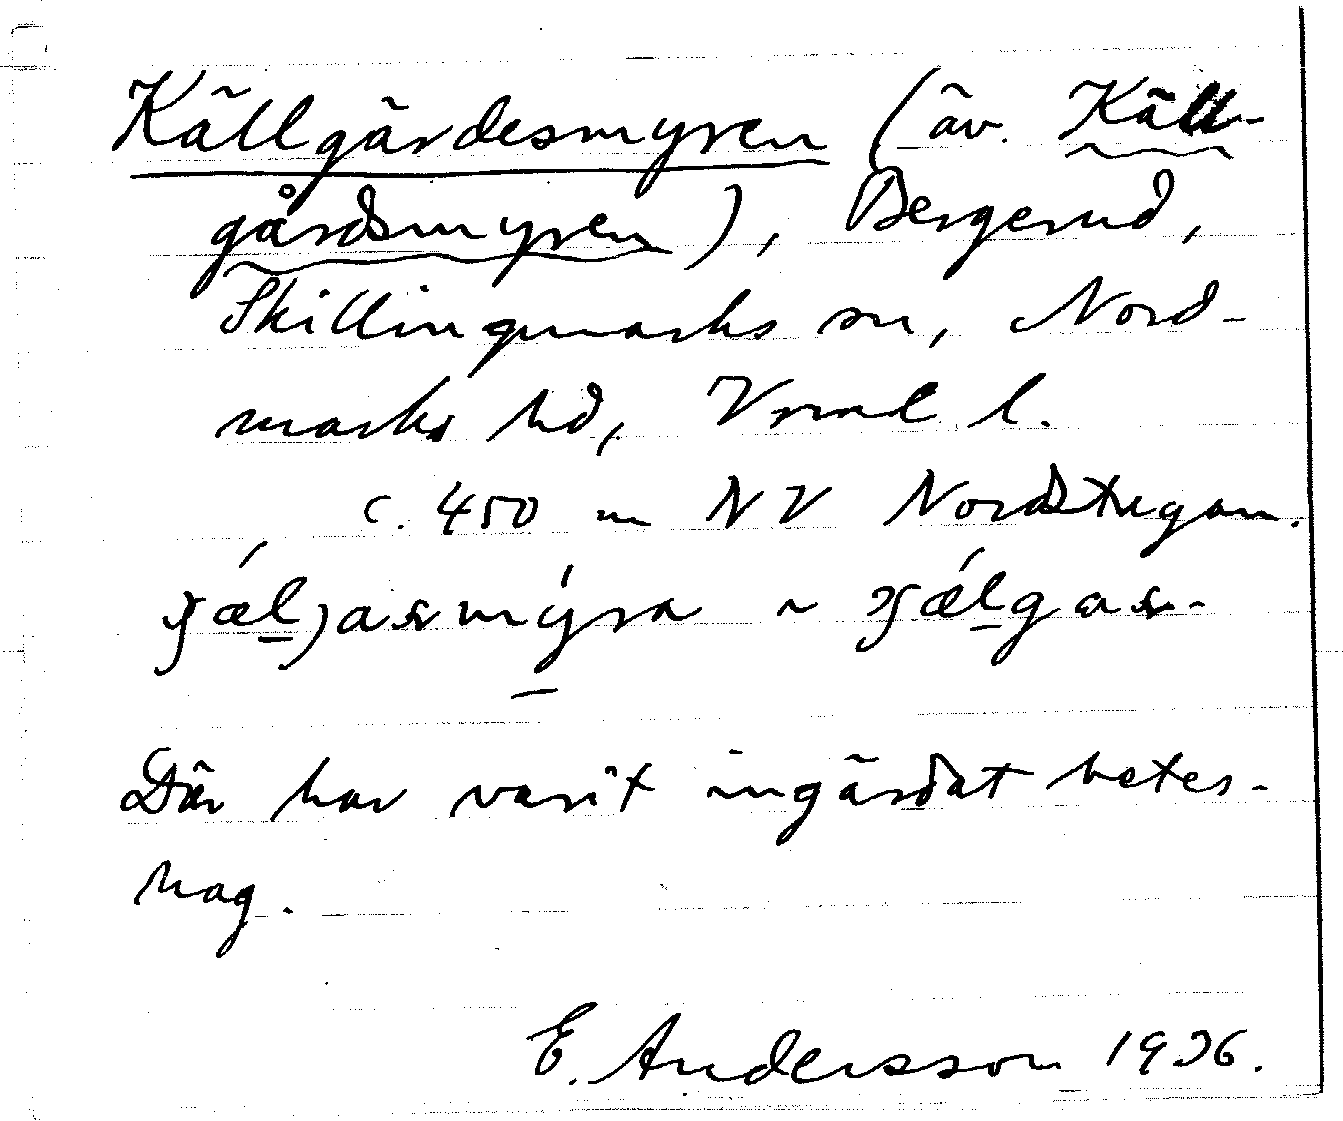 Källgärdesmyren (äv. Käll-
gårdsmyren), Bergerud,
Skillingmarks sn, Nord-
marks hd, Vrml l.
c. 450 m NV Nordstugan.
Där har varit ingärdat betes-
hag.
E. Andersson 1936.